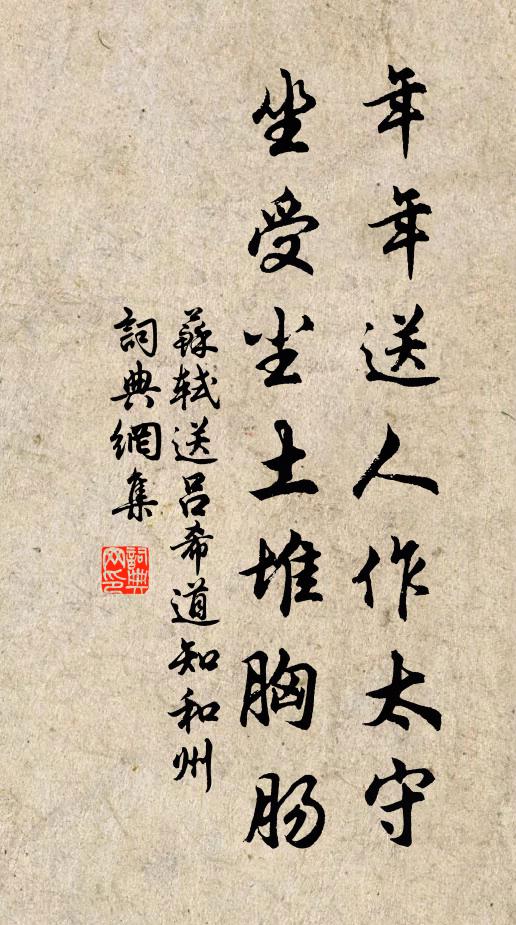 年年送人作太守
坐受尘土堆胸肠
蘇軾送吕希道知和州
詞典網集
詞典网印